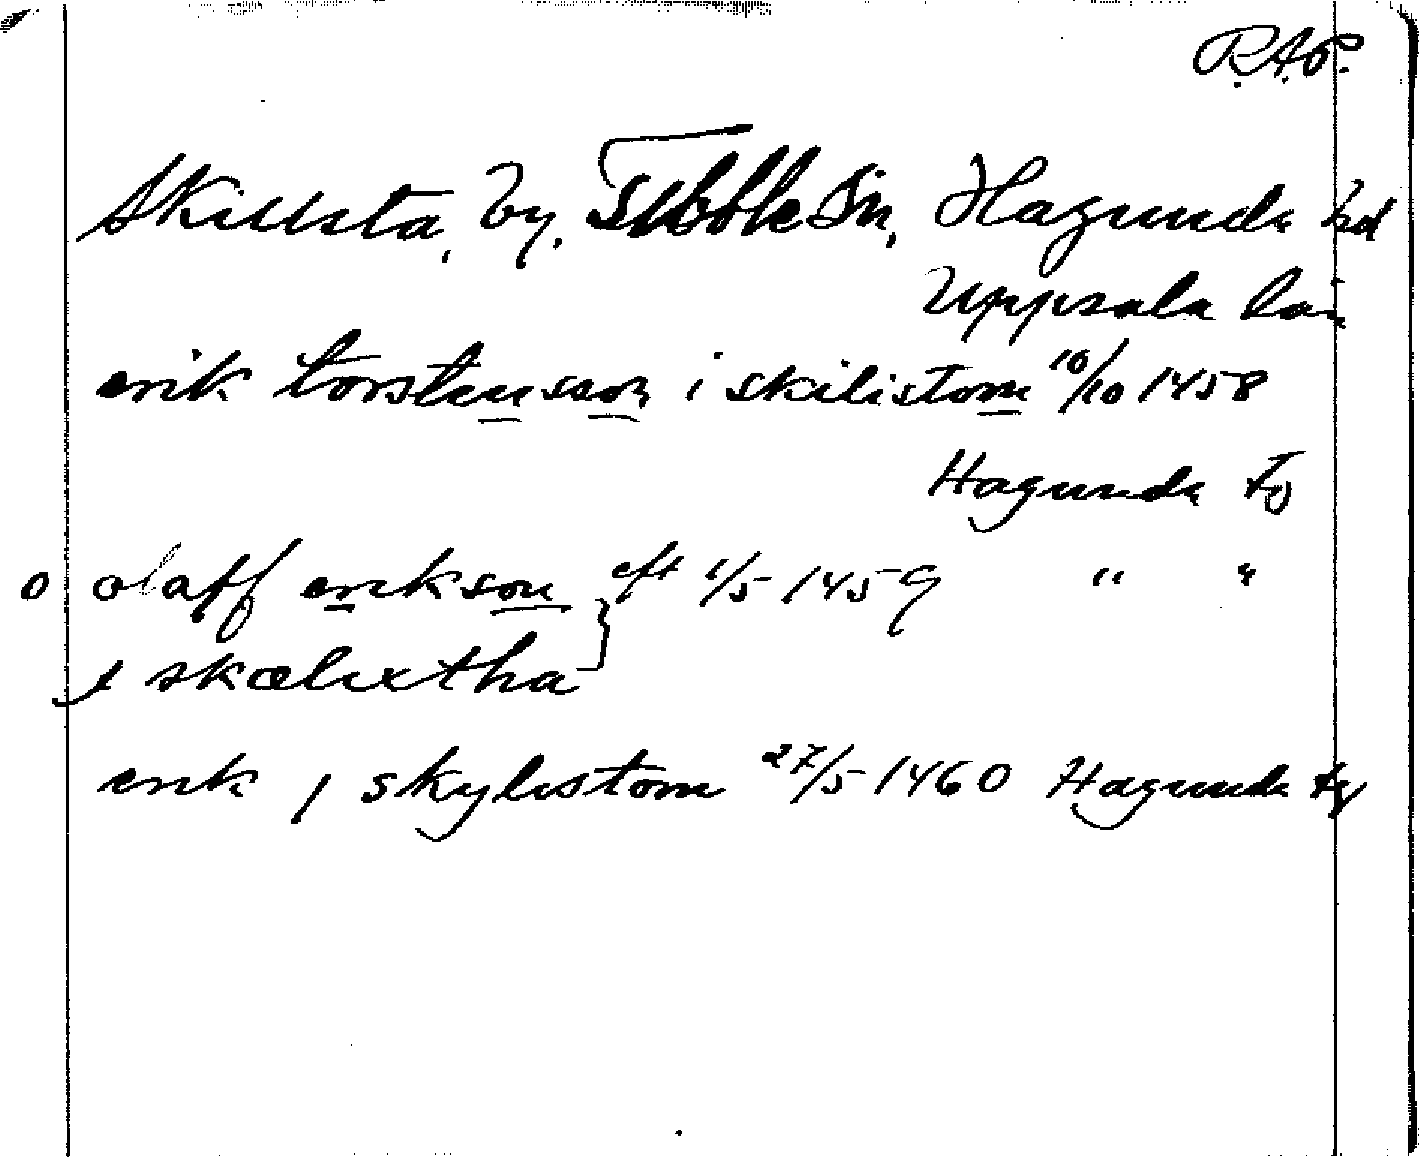 R.A.P.
Skillsta, by, Gibble sn, Hagunda hd
Uppsala län
erik torstensson i skilistom 10/10 1458
Hagunda tg
o olaff erikson } eft 1/5 1459 " "
j skælixtha
erik j skylistom 27/5 1460 Hagunda tg